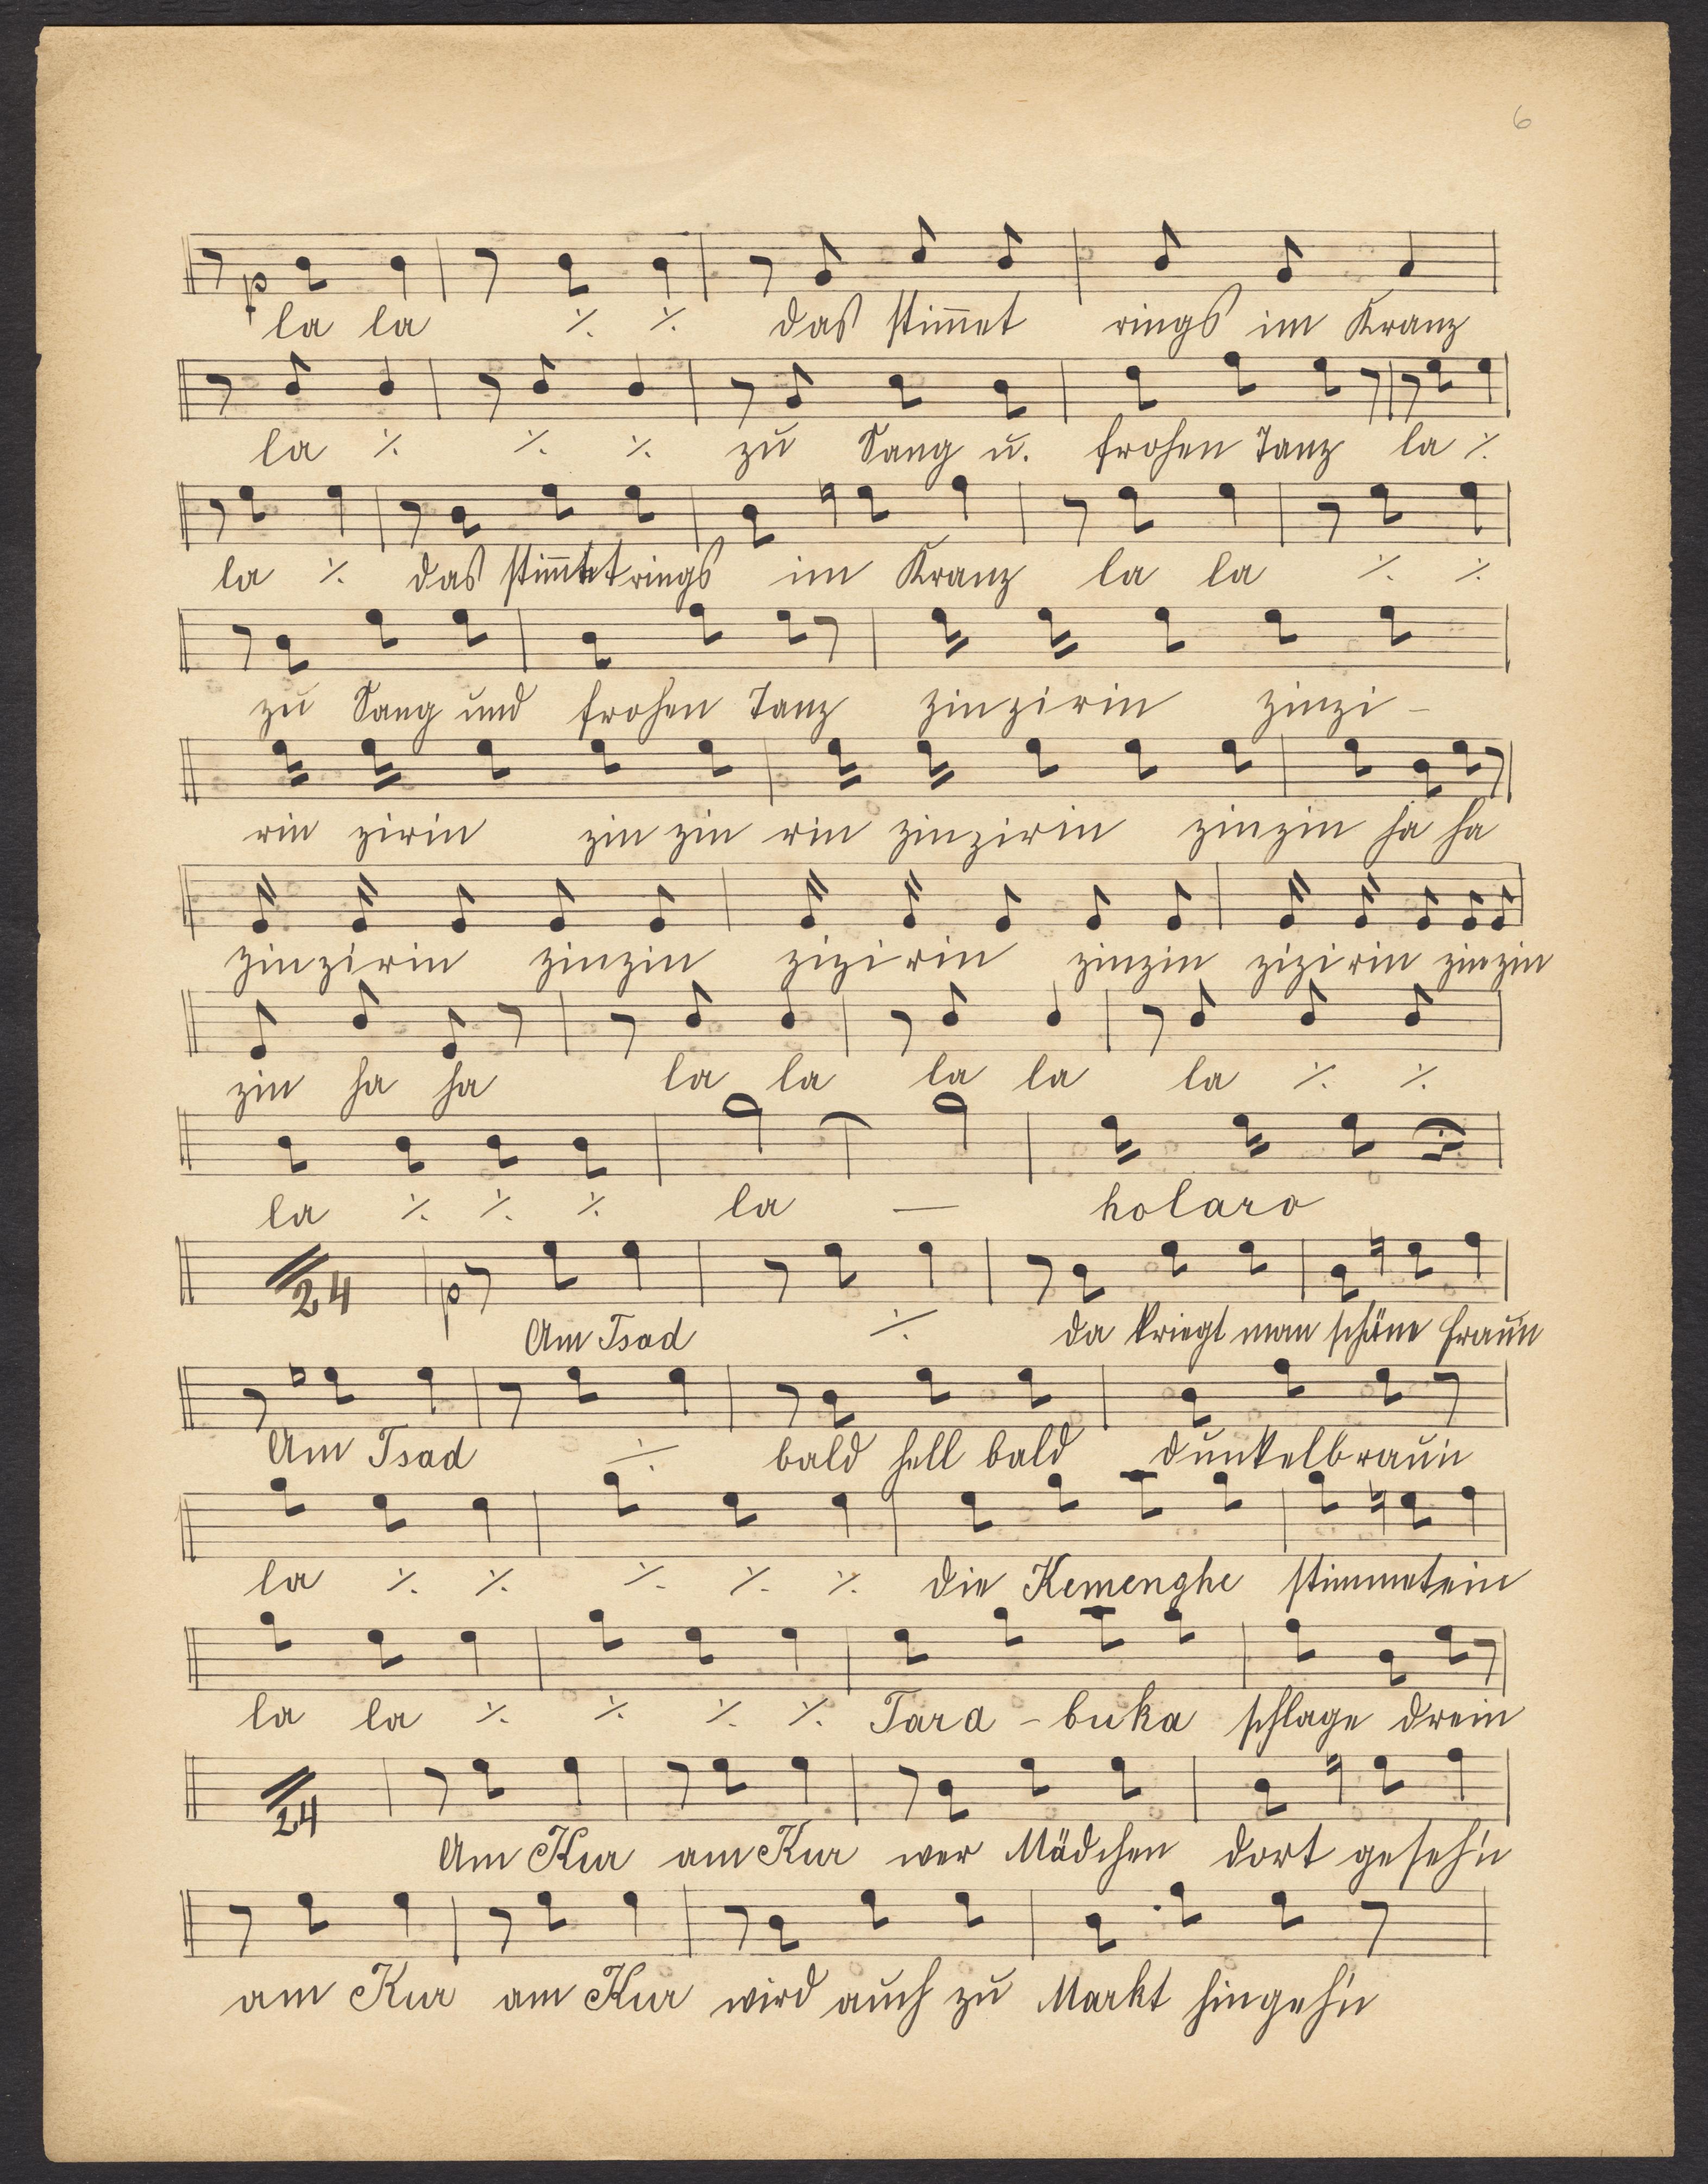 6
p
la la ⁒ ⁒ das stim̅et rings im Kranz
la ⁒ ⁒ ⁒ zu Sang u. frohen Tanz la ⁒
la ⁒ das stim̅tet rings im Kranz la la ⁒ ⁒
zu Sang und frohen Tanz zinzirin zinzi-
rin zirin zin zin rin zinzirin zinzin ha ha
zinzirin zinzin zizirin zinzin zizirin zinzin
zin ha ha la la la la la ⁒ ⁒
la ⁒ ⁒ ⁒ la — holaro
24 p
Am Tsad ⁒ da kriegt man schöne Frau'n
Am Tsad ⁒ bald hell bald dunkelbrau'n
la ⁒ ⁒ ⁒ ⁒ ⁒ die Kemenghe stimmet ein
la la ⁒ ⁒ ⁒ ⁒ Tara-buka schlage drein
24
Am Kur am Kur wer Mädchen dort geseh'n
am Kur am Kur wird auch zu Markt hingeh'n